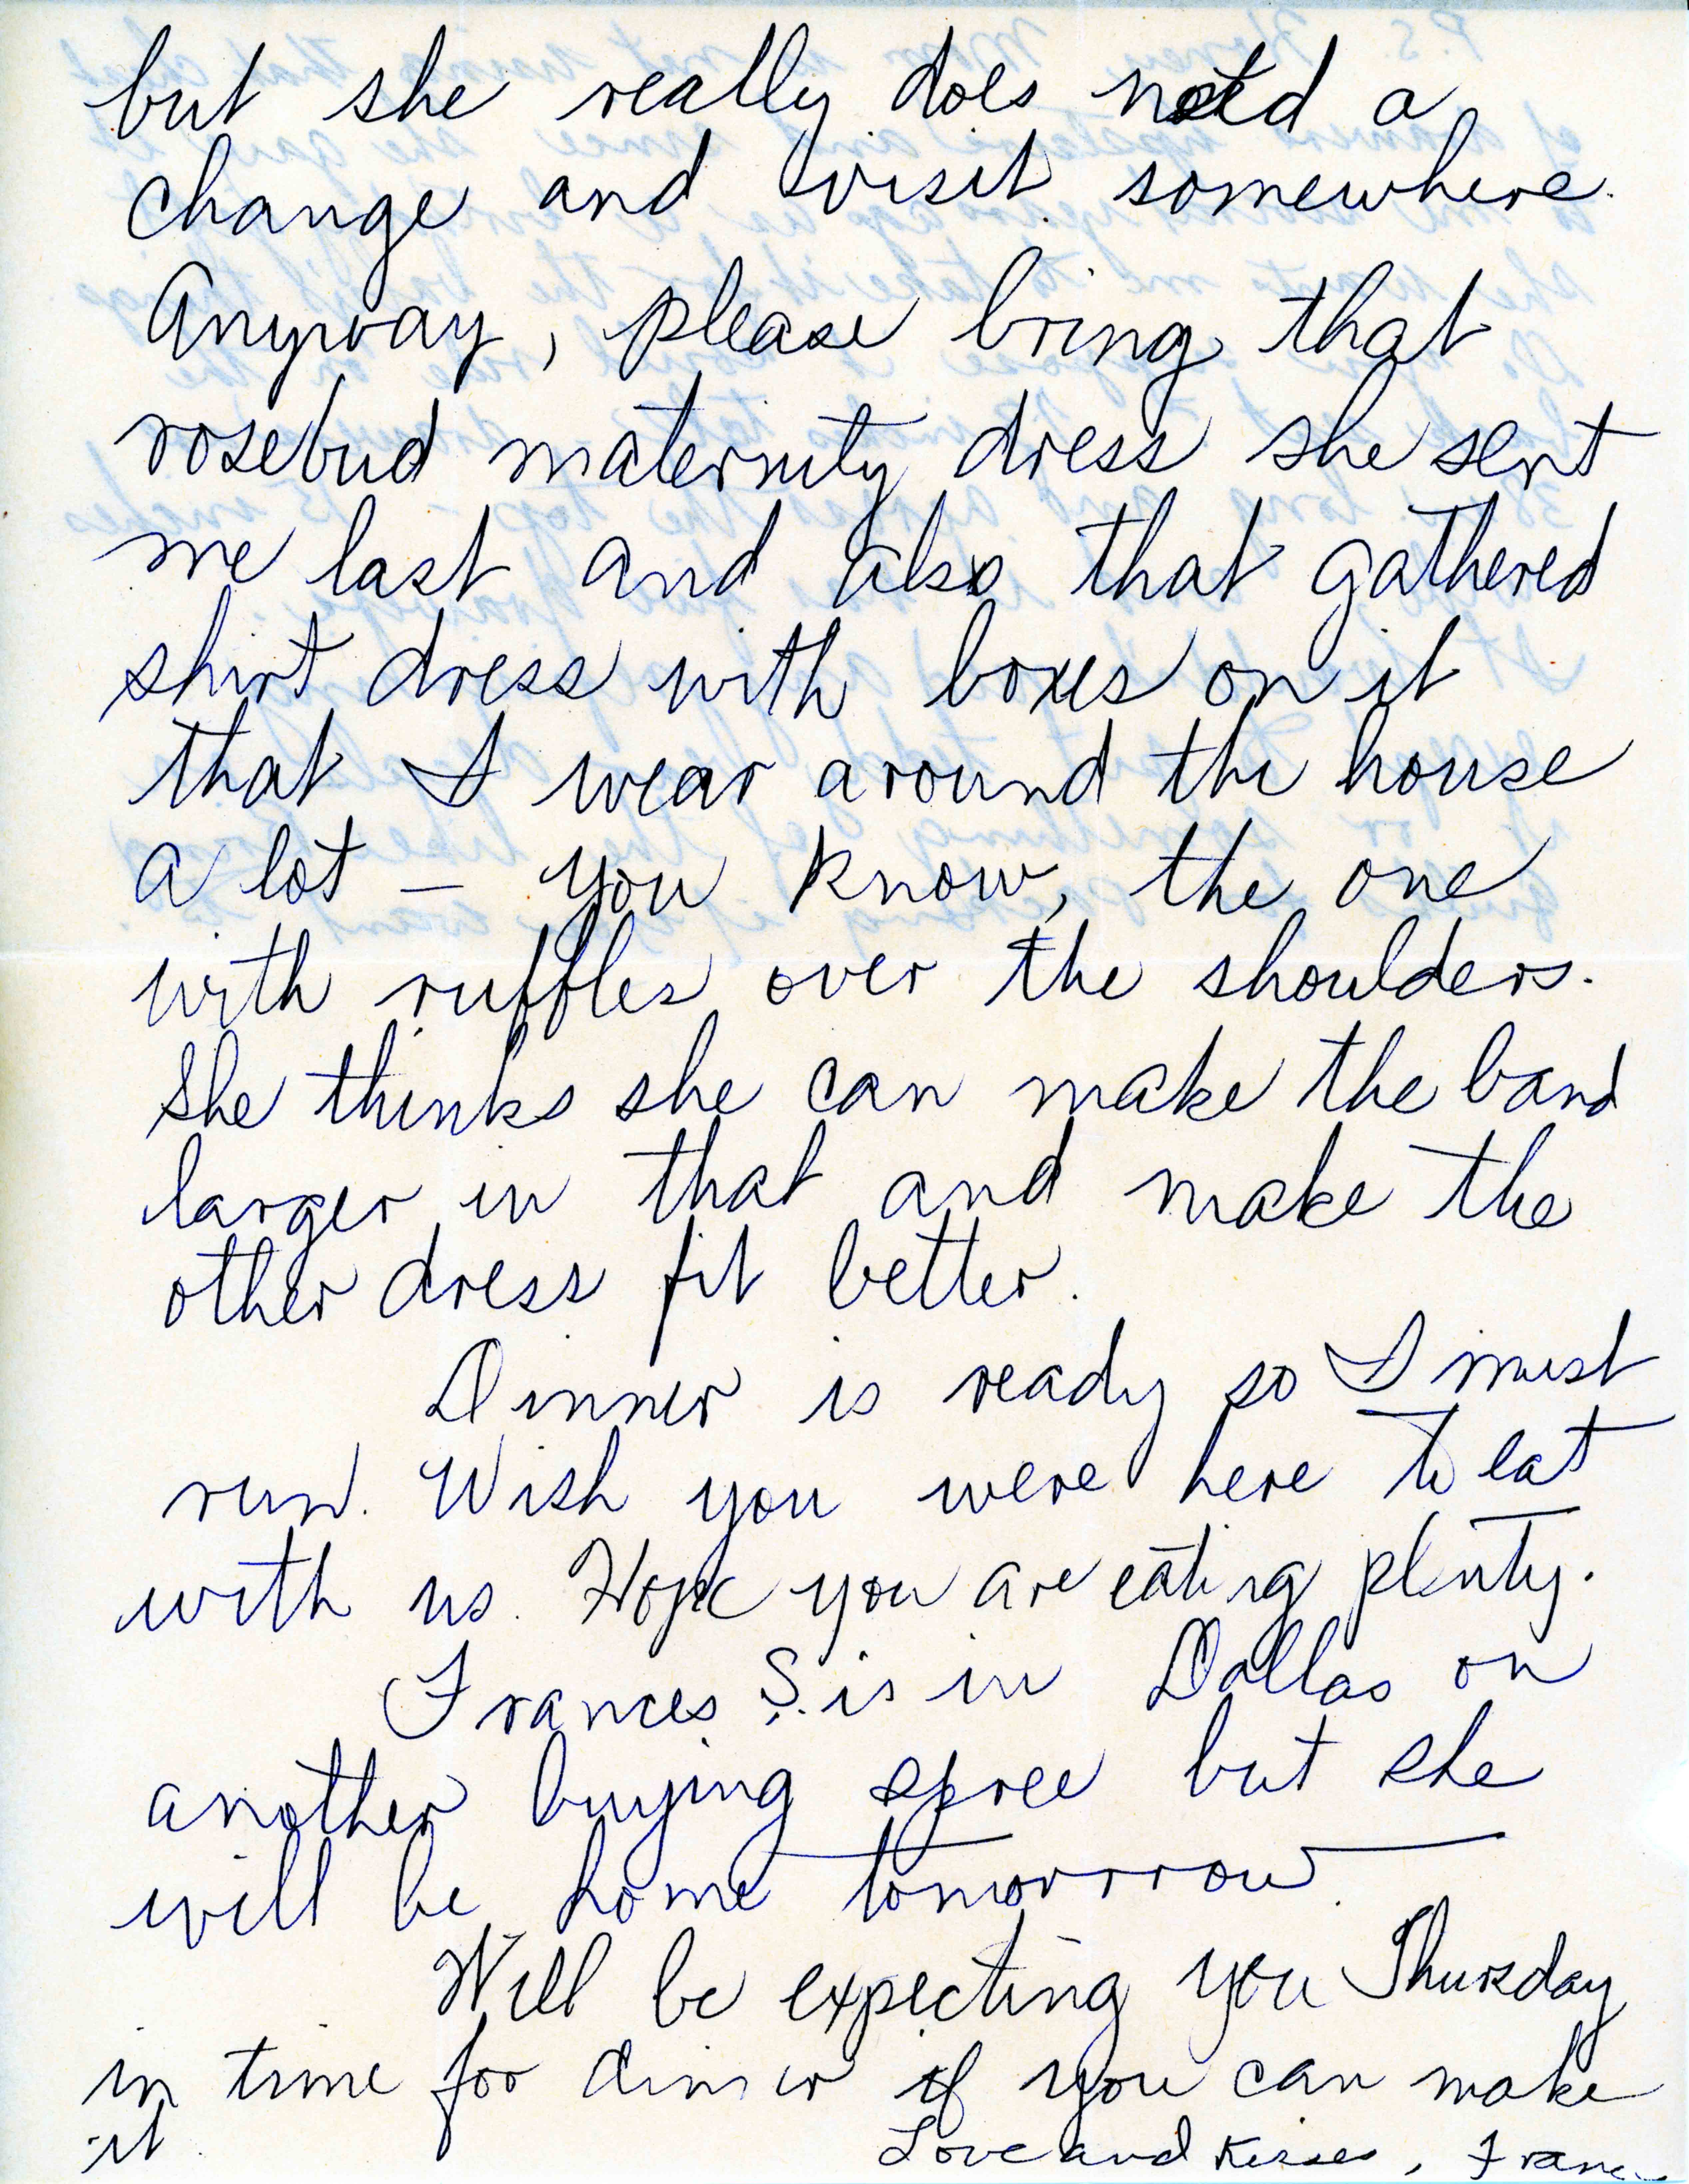 but she really does need a
change and visit somewhere.
Anyway, please bring that
rosebud maternity dress she sent
me last and also that gathered
shirt dress with boxes on it
that I wear around the house
a lot — you know, the one
with ruffles over the shoulders.
She thinks she can make the band
larger in that and make the
other dress fit better.
Dinner is ready so I must
run. Wish you were here to eat
with us. Hope you are eating plenty.
Frances S. is in Dallas on
another buying spree but she
will be home tomorrow.
Will be expecting you Thursday
in time for dinner if you can make
it.
Love and Kisses, Franc